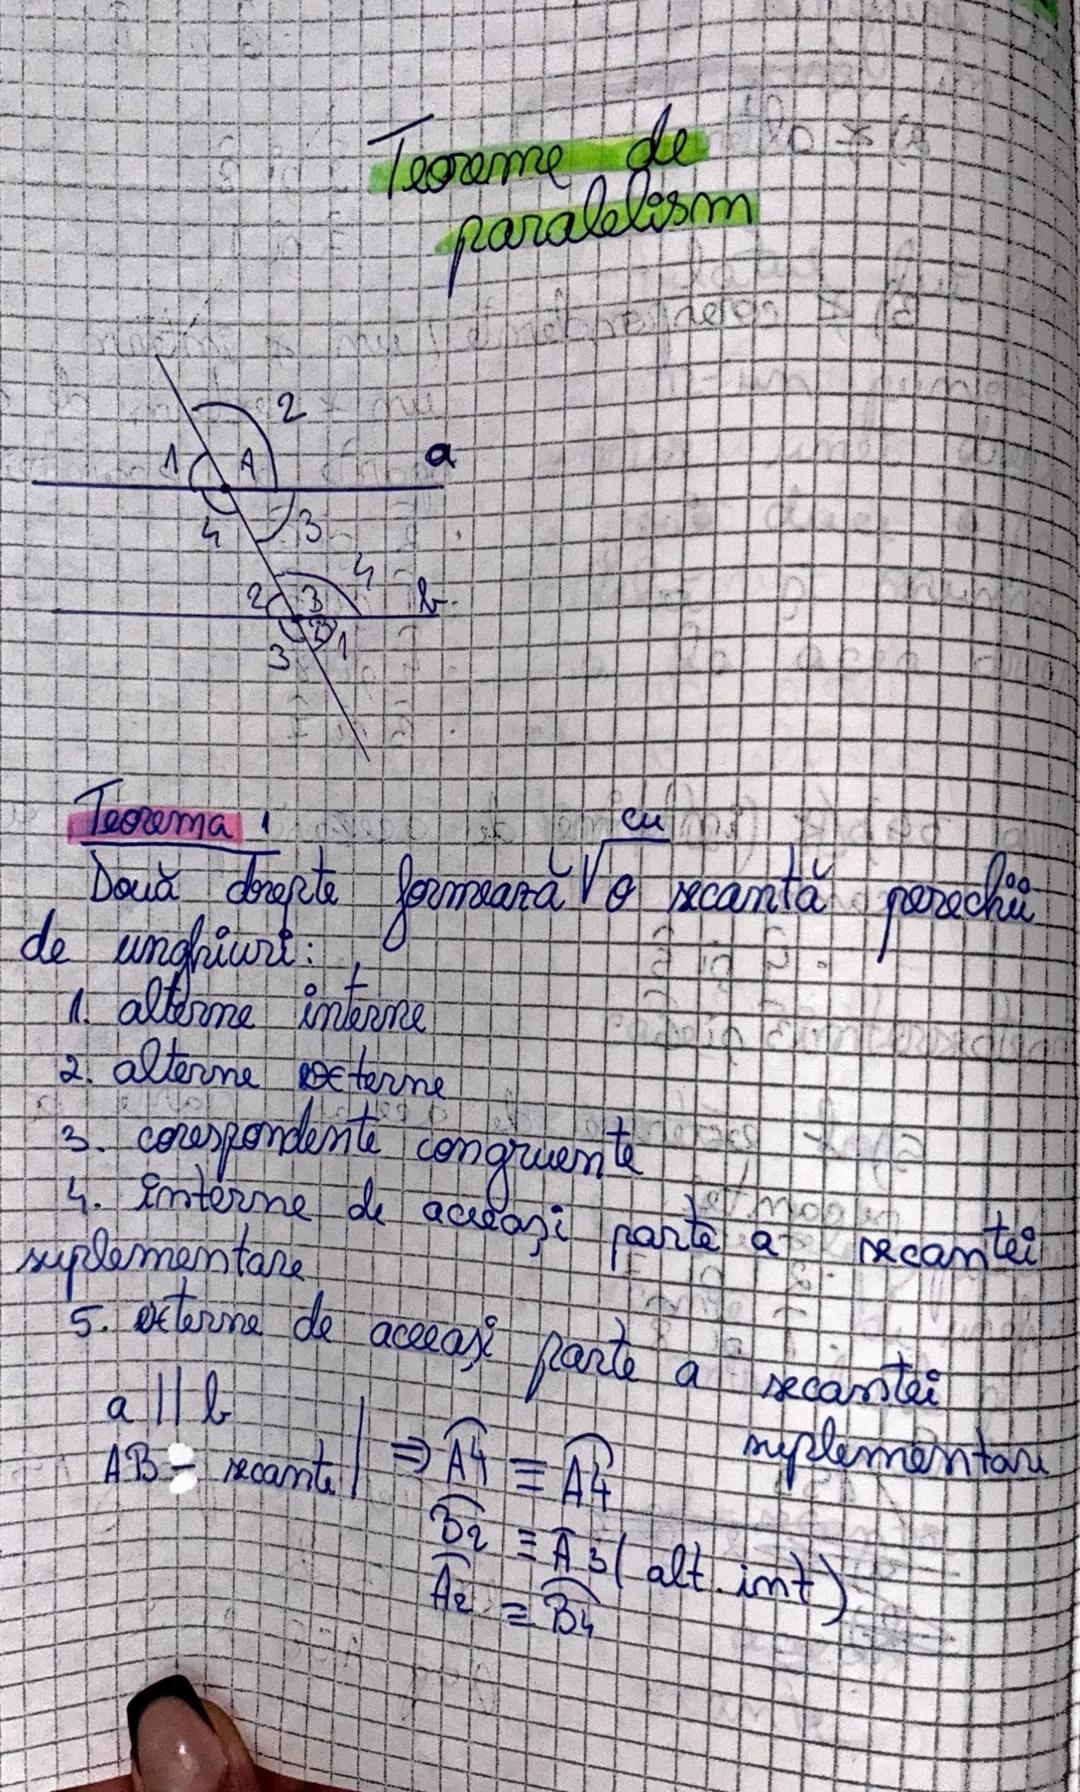 Teoreme de
paralelism
2
1 A a
4 3
2 B 4 b
3 B 1
Teorema 1
cu
Două drepte formează √ o secantă perechii
de unghiuri:
1. alterne interne
2. alterne externe
3. corespondente congruente
4. interne de aceeași parte a secantei
suplementare
5. externe de aceeași parte a secantei
suplementare
a || b
AB - secante | ⇒ A4 ≡ A4
B2 ≡ A3 ( alt. int)
A2 ≡ B4